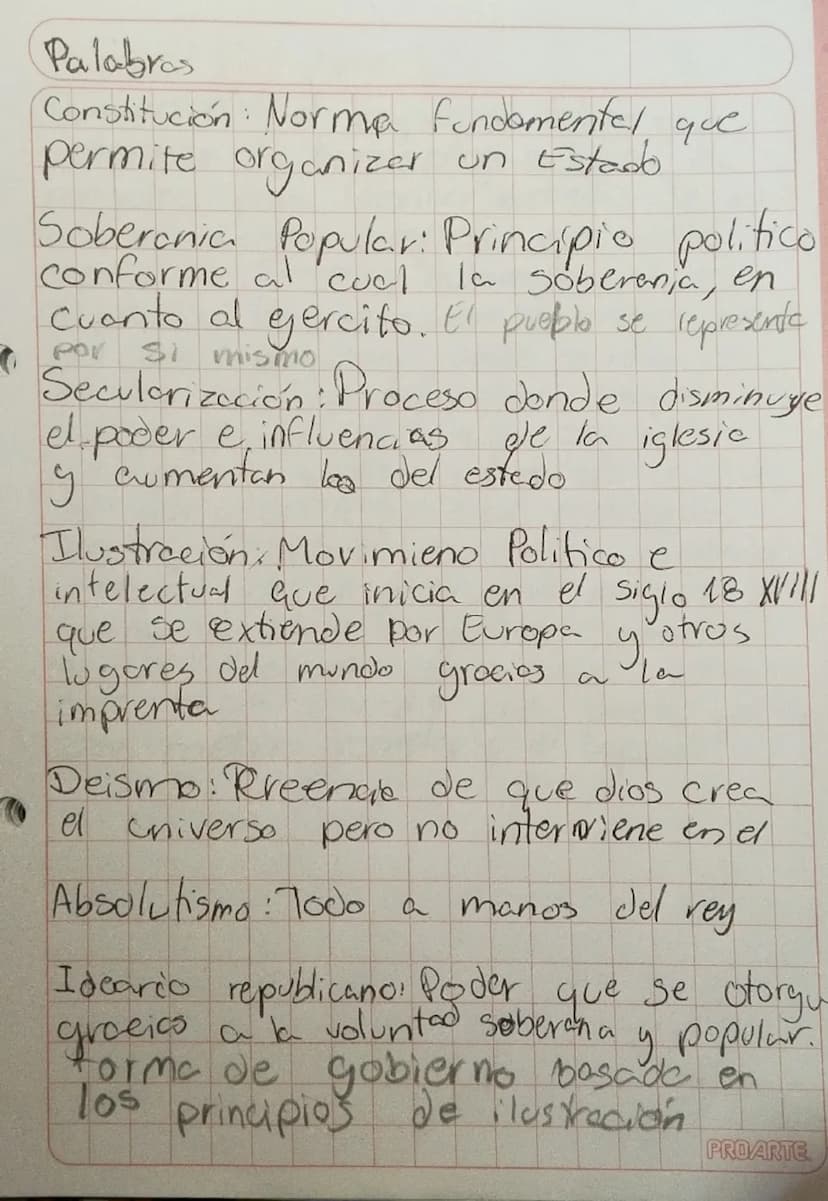 Palabras
Constitución: Norma fundamental que
permite organizar un Estado
Soberania Popular: Principio politico
conforme al cual la soberania, en
cuanto al ejercito. El pueblo se representa
por si mismo
Secularización: Proceso donde disminuye
el poder e influencias de la iglesia
y aumentan las del estado
Ilustración: Movimieno Politico e
intelectual que inicia en el siglo 18 XVIII
que se extiende por Europa y otros
lugares del mundo gracias a la
imprenta
Deismo: Rreencia de que dios crea
el universo pero no interviene en el
Absolutismo: Todo a manos del rey
Ideario republicano: Poder que se otorga
gracias a la voluntad soberana y popular.
forma de gobierno basada en
los principios de ilustración
PROARTE